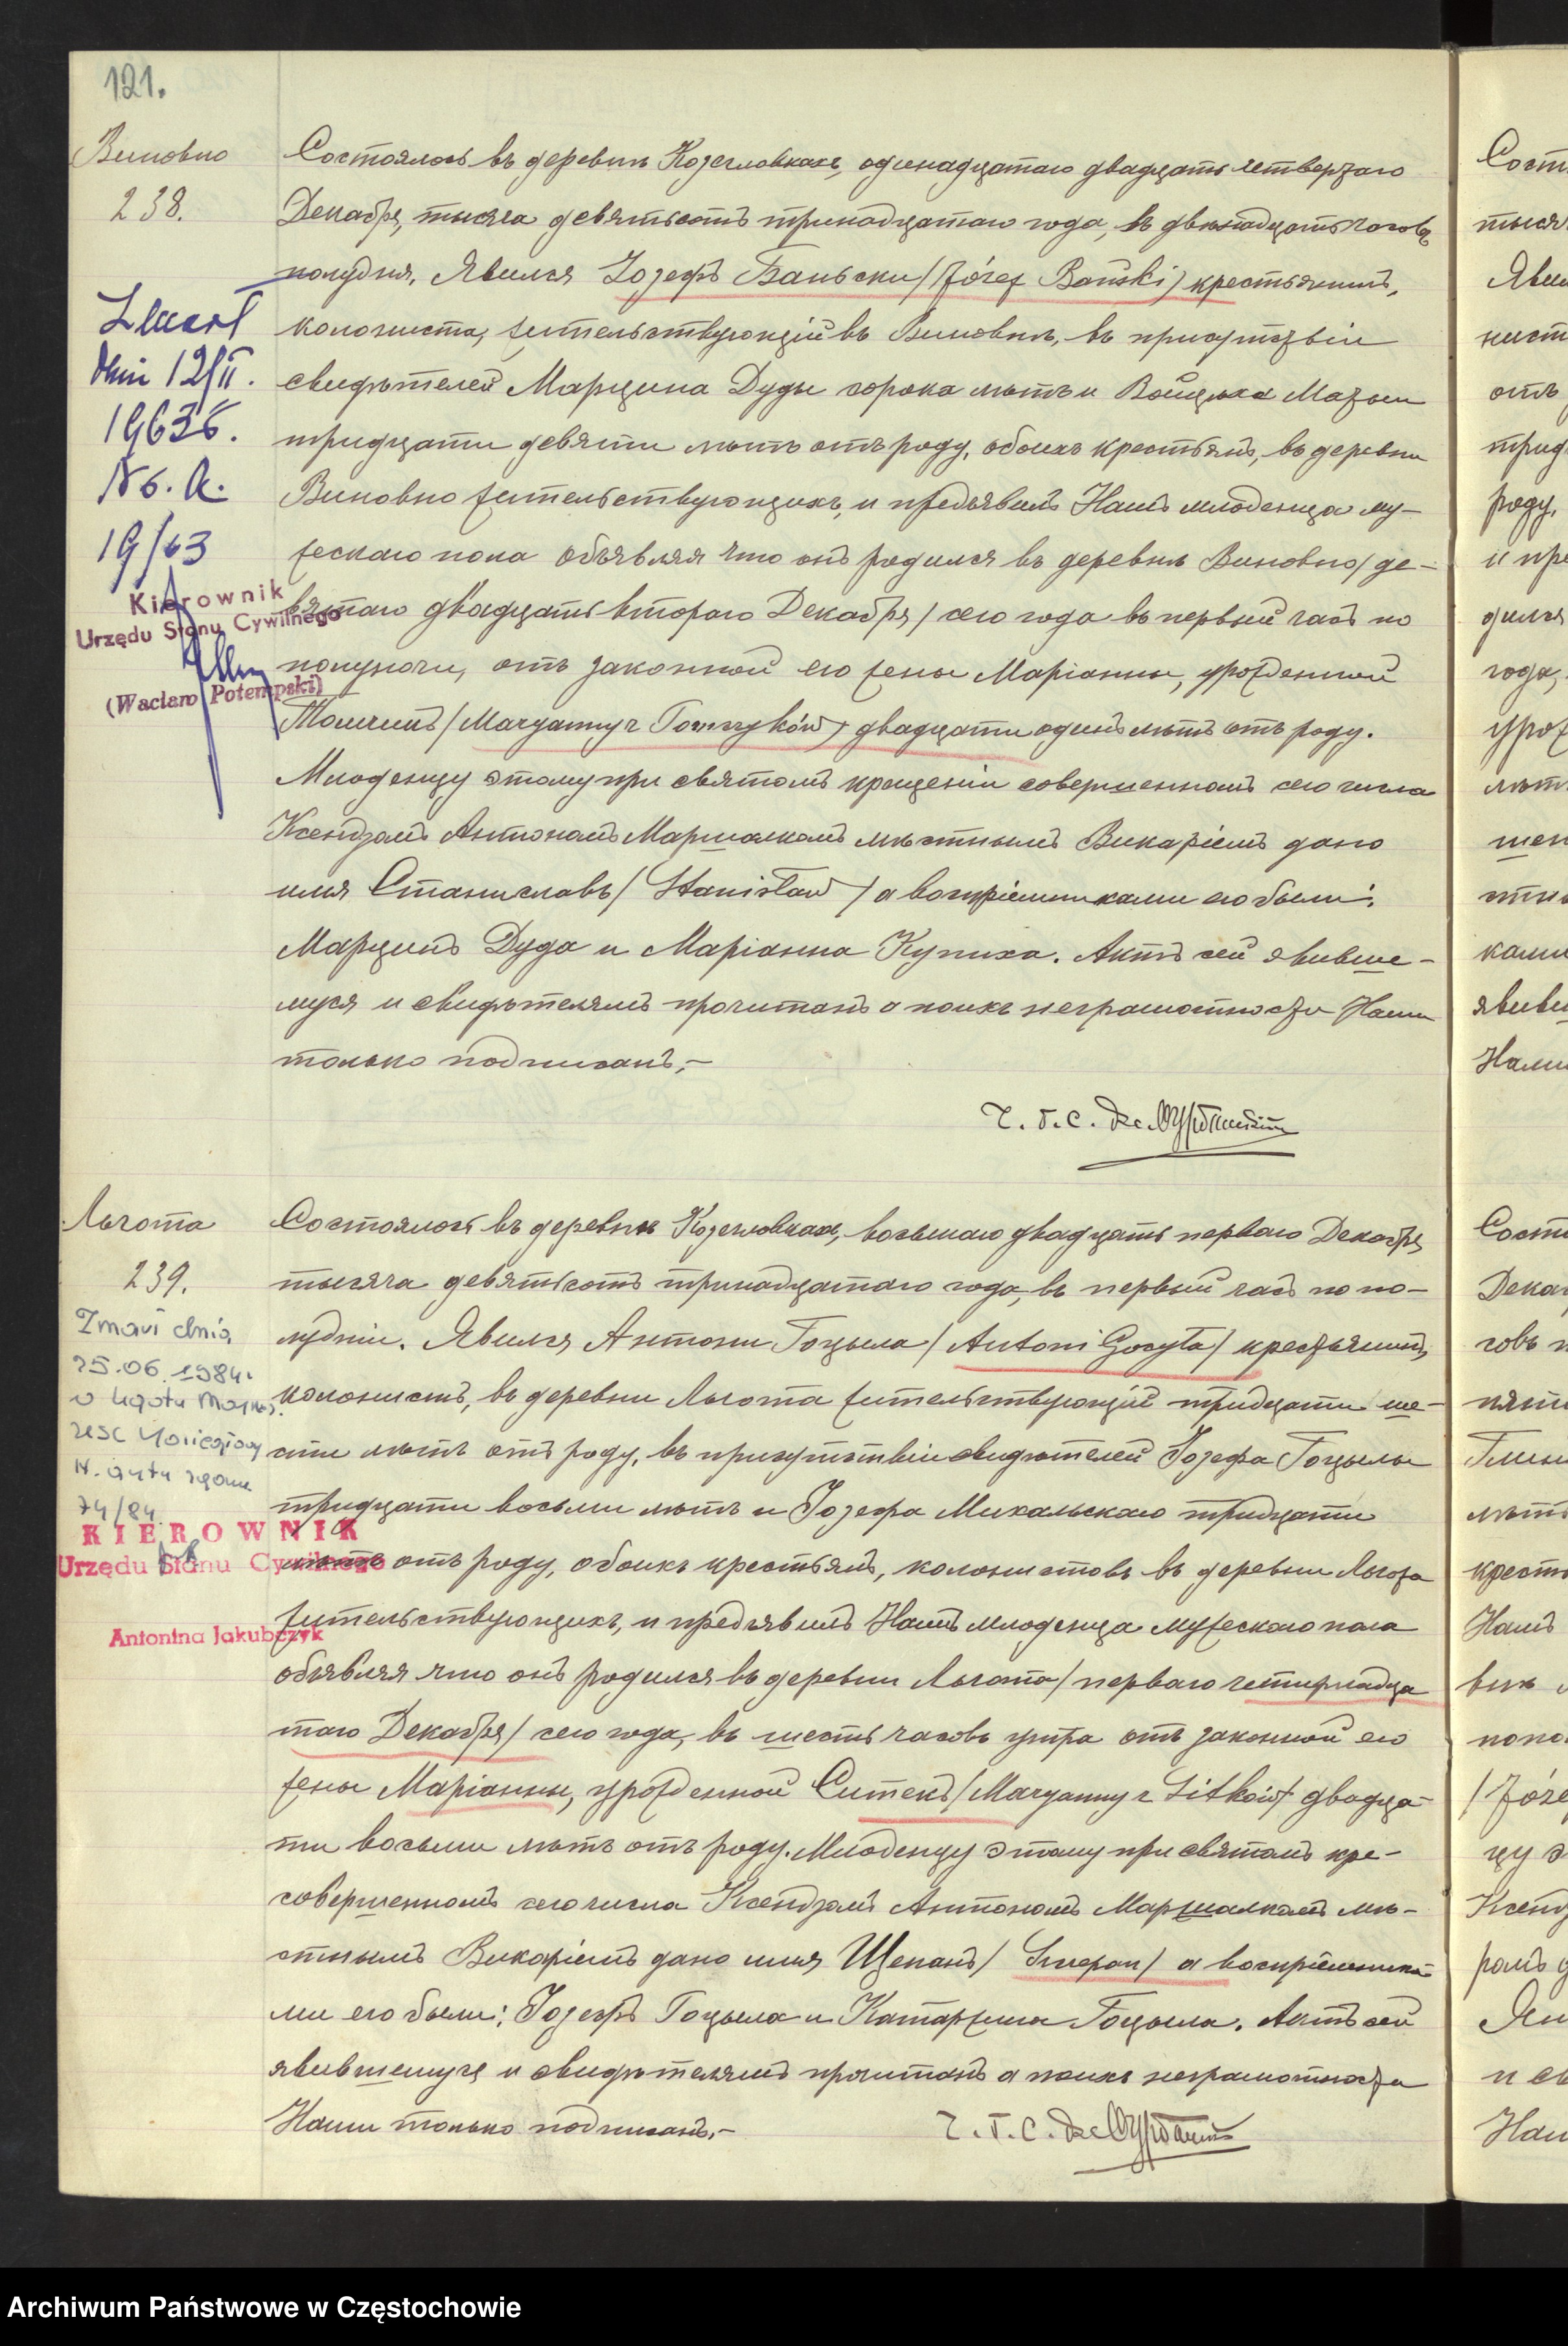 121.
Виновно
238.
Состоялось въ деревнѣ Козегловкахъ, одиннадцатаго двадцать четвертаго
Декабря, тысяча девятьсотъ тринадцатаго года, въ двѣнадцать часовъ
полудня. Явился Іозефъ Баньски /Józef Bański/ крестьянинъ,
колониста, жительствующій въ Виновнѣ, въ присутствіи
свидѣтелей Марцина Дуды сорока лѣтъ и Войцѣха
тридцати девяти лѣтъ отъ роду, обоихъ крестьянъ, въ деревни
Виновно жительствующихъ, и предъявилъ Намъ младенца му-
жескаго пола объявляя что онъ родился въ деревнѣ Виновно /де-
вятаго двадцать втораго Декабря/ сего года въ первый часъ по
полуночи, отъ законной его жены Маріанны, урожденной
Томчикъ /Maryanny z Tomczyków/ двадцати одинъ лѣтъ отъ роду.
Младенцу этому при святомъ крещеніи совершенномъ сего числа
Ксендзомъ Антономъ Маршалкомъ мѣстнымъ Викаріемъ дано
имя Станиславъ /Stanisław/ а воспріемниками его были:
Марцинъ Дуда и Маріанна Купиха. Актъ сей явивше-
муся и свидѣтелямъ прочитанъ а по ихъ неграмотности Нами
только подписанъ.-
Zmarł
dnia 12/II.
1963 r.
Nr. A.
19/63
Kierownik
Urzędu Stanu Cywilnego
(Wacław Potempski)
Ч. Г. С. Кс.
Льгота
239.
Состоялось въ деревнѣ Козегловкахъ, восьмаго двадцать перваго Декабря
тысяча девятьсотъ тринадцатаго года, въ первый часъ по по-
лудніи. Явился Антони Гоцыла /Antoni Gocyła/ крестьянинъ,
колонистъ, въ деревни Льгота жительствующій тридцати ше-
сти лѣтъ отъ роду, въ присутствіи свидѣтелей Іозефа Гоцылы
тридцати восьми лѣтъ и Іозефа Михальскаго тридцати
лѣтъ отъ роду, обоихъ крестьянъ, колонистовъ въ деревни Льгота
жительствующихъ, и предъявилъ Намъ младенца мужескаго пола
объявляя что онъ родился въ деревни Льгота /перваго четырнадца
таго Декабря/ сего года, въ шесть часовъ утра отъ законной его
жены Маріанны, урожденной Ситекъ /Maryanny z Sitków/ двадца-
ти восьми лѣтъ отъ роду. Младенцу этому при святомъ кре-
совершенномъ сего числа Ксендзомъ Антономъ Маршалкомъ мѣ-
стнымъ Викаріемъ дано имя Щепанъ /Szczepan/ а воспріемника-
ми его были: Іозефъ Гоцыла и Катаржина Гоцыла. Актъ сей
явившемуся и свидѣтелямъ прочитанъ а по ихъ неграмотности
Нами только подписанъ.-
Zmarł dnia
25.06.1984.
w Ligota
N. aktu zgonu
74/84
KIEROWNIK
Urzędu Stanu Cywilnego
Antonina Jakubczyk
Ч. Г. С. Кс.
Archiwum Państwowe w Częstochowie